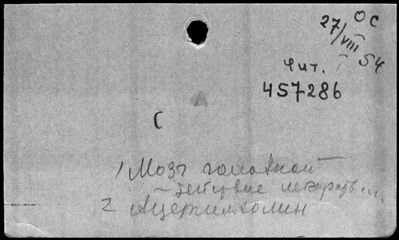 ОС
27/VIII 54
Чит.
457286
С
1 Мозг головной
– действие лекарств
2 Ацетилхолин